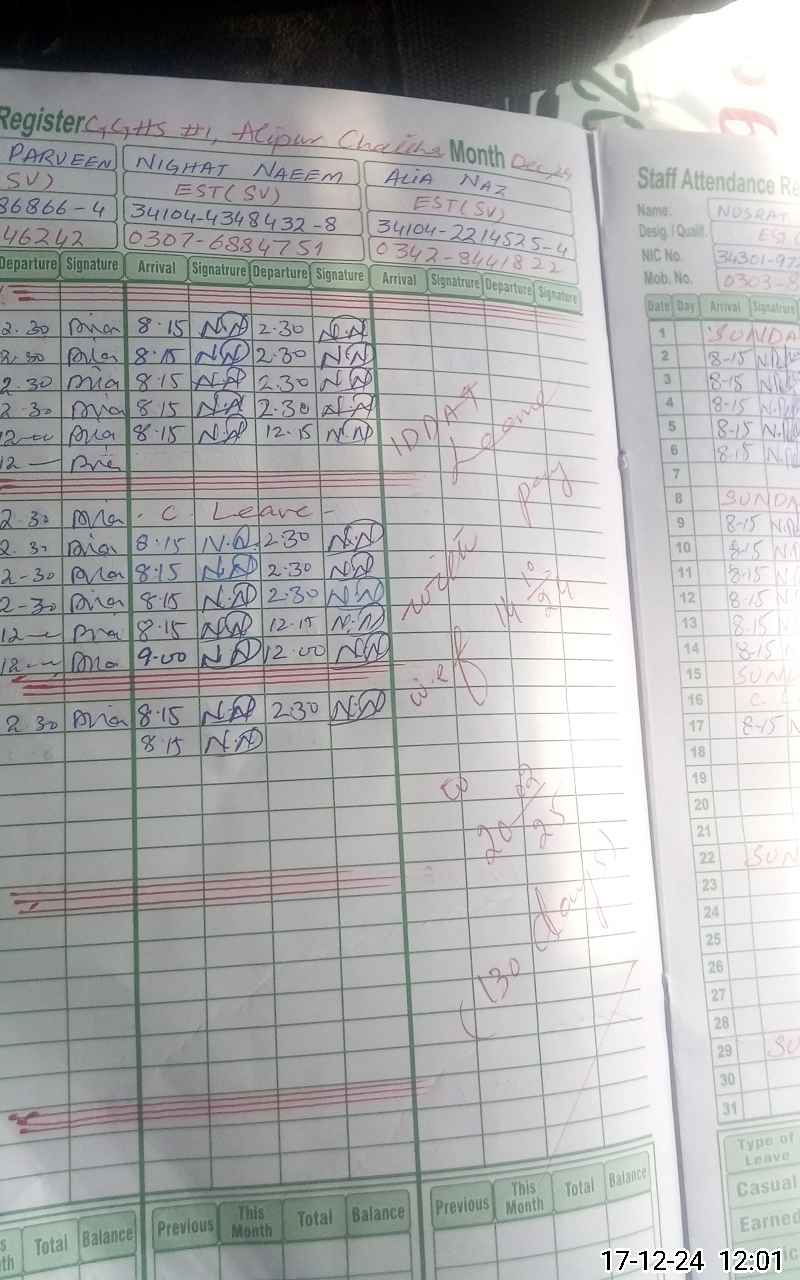 Register G.G.H.S #1, Alipur Chattha Month Dec, 24
PARVEEN NIGHAT NAEEM ALIA NAZ
SV) EST(SV) EST(SV)
86866-4 34104-4348432-8 34104-2214525-4
46242 0307-6884751 0342-8441822
Departure Signature Arrival Signatrure Departure Signature Arrival Signatrure Departure Signature
2.30 8.15 N.N 2.30 N.N
2.30 8.15 N.N 2.30 N.N
2.30 8.15 N.N 2.30 N.N
2.30 8.15 N.N 2.30 N.N
12 8.15 N.N 12.15 N.N
12
2.30 C. Leave -
2.30 8.15 N.N 2.30 N.N
2-30 8.15 N.N 2.30 N.N
2-30 8.15 N.N 2.30 N.N
12 8.15 N.N 12.15 N.N
12 9.00 N.N 12.00 N.N
2.30 8.15 N.N 2.30 N.N
8.15 N.N
IDDAT
Leave
with pay
w.e.f 14 10/24
to
20 02/25
(130 days)
s
th Total Balance Previous This Month Total Balance Previous This Month Total Balance
Staff Attendance Re
Name: NUSRAT
Desig. / Qualif. EST (
NIC No. 34301-97
Mob. No. 0303-8
Date Day Arrival Signatrure
1 SUNDA
2 8-15
3 8-15
4 8-15
5 8-15
6 8.15
7
8 SUNDA
9 8-15
10 8-15
11 8-15
12 8-15
13 8.15
14 8-15
15 SUN
16 C. L
17 8-15
18
19
20
21
22 SUN
23
24
25
26
27
28
29 SU
30
31
Type of Leave
Casual
Earned
17-12-24 12:01